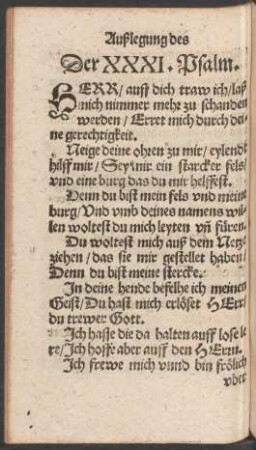 Außlegung des
Der XXXI. Psalm.
HERR/ auff dich traw ich/ laß
mich nimmer mehr zu schanden
werden/ Erret mich durch dei-
ne gerechtigkeit.
Neige deine ohren zu mir/ eylende
hilff mir/ Sey mir ein starcker fels/
vnd eine burg das du mir helffest.
Denn du bist mein fels vnd meine
burg/ Vnd vmb deines namens wil-
len woltest du mich leyten vñ füren.
Du woltest mich auß dem Netze
ziehen/ das sie mir gestellet haben/
Denn du bist meine stercke.
In deine hende befelhe ich meinen
Geist/ Du hast mich erlöset HErr/
du trewer Gott.
Ich hasse die da halten auff lose le
re/ Ich hoffe aber auff den HErrn.
Ich frewe mich vnnd bin frölich
vber